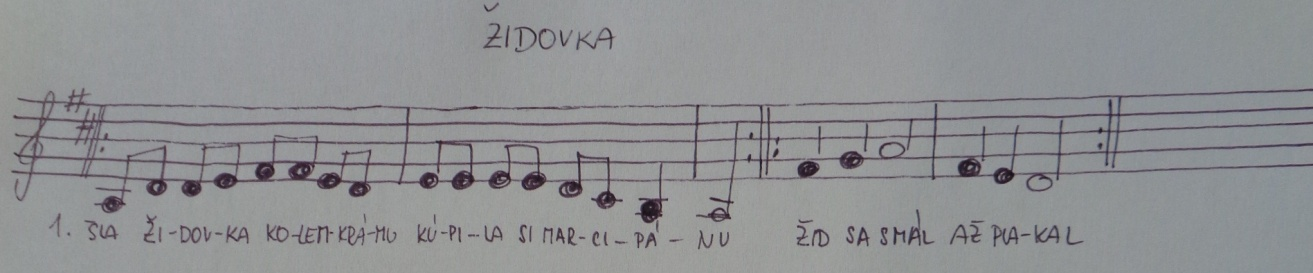 ŽIDOVKA
1. ŠLA ŽI-DOV-KA KO-LEM-KRÁ-MU KÚ-PI-LA SI MAR-CI-PÁ-NU ŽID SA SMÁL AŽ PLA-KAL